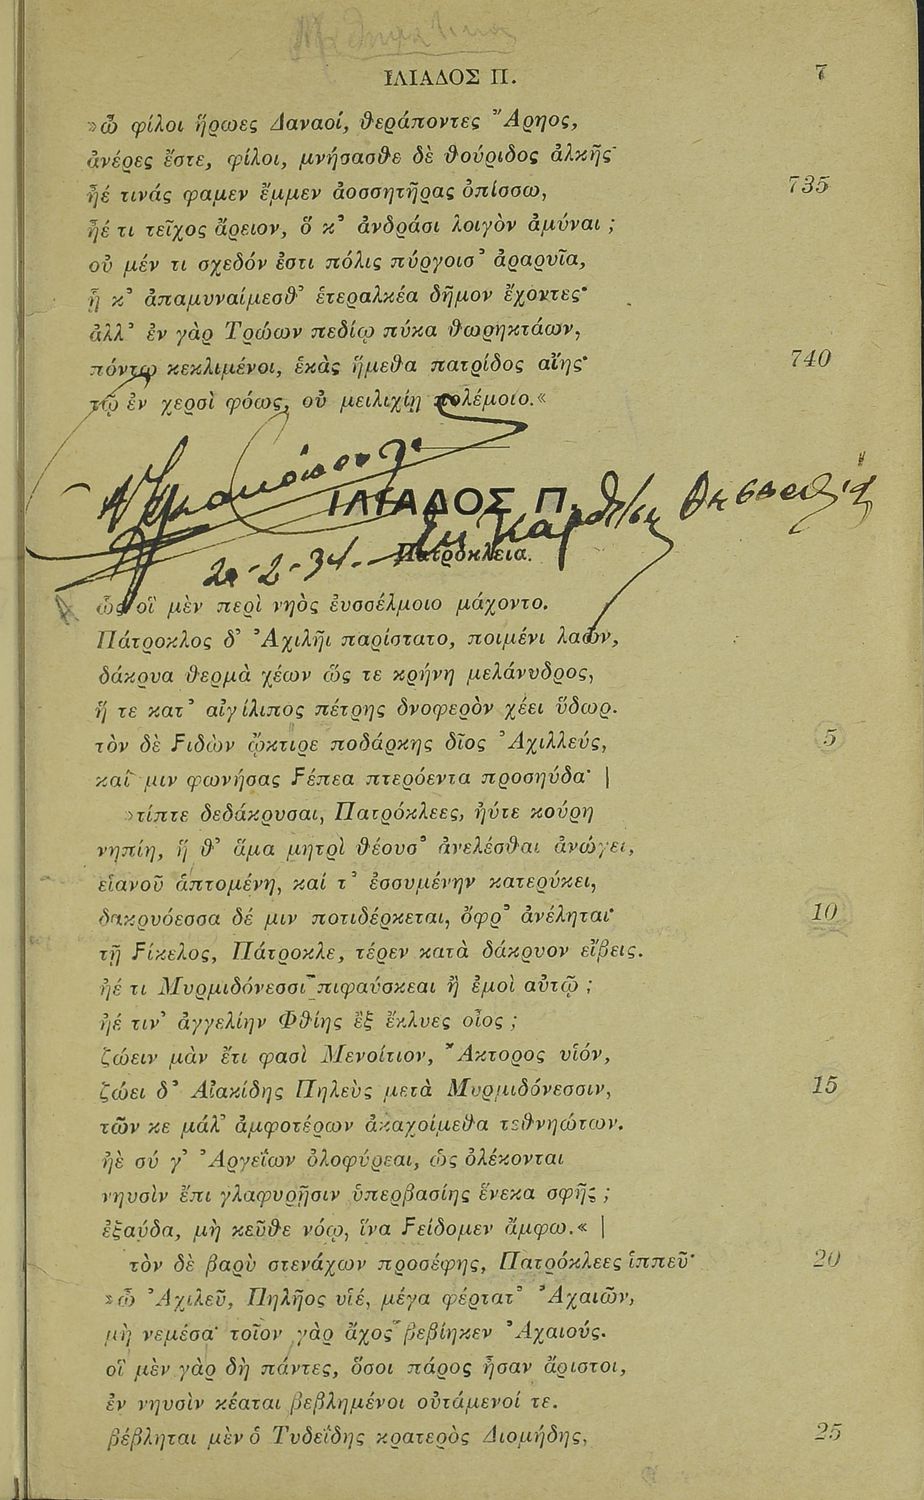 ΙΛΙΑΔΟΣ Π. 7
»ὦ φίλοι ἥρωες Δαναοί, θεράποντες Ἄρηος,
ἀνέρες ἔστε, φίλοι, μνήσασθε δὲ θούριδος ἀλκῆς·
ἦέ τινάς φαμεν ἔμμεν ἀοσσητῆρας ὀπίσσω, 735
ἦέ τι τεῖχος ἄρειον, ὅ κ' ἀνδράσι λοιγὸν ἀμύναι ;
οὐ μέν τι σχεδόν ἐστι πόλις πύργοισ' ἀραρυῖα,
ᾗ κ' ἀπαμυναίμεσθ' ἑτεραλκέα δῆμον ἔχοντες·
ἀλλ' ἐν γὰρ Τρώων πεδίῳ πύκα θωρηκτάων,
πόντῳ κεκλιμένοι, ἑκὰς ἥμεθα πατρίδος αἴης· 740
τῷ ἐν χερσὶ φόως, οὐ μειλιχίῃ πολέμοιο.«
ΙΛΙΑΔΟΣ Π.
20-2-34.
Πατρόκλεια.
ὣς οἳ μὲν περὶ νηὸς ἐυσσέλμοιο μάχοντο.
Πάτροκλος δ' Ἀχιλῆι παρίστατο, ποιμένι λαῶν,
δάκρυα θερμὰ χέων ὥς τε κρήνη μελάνυδρος,
ἥ τε κατ' αἰγίλιπος πέτρης δνοφερὸν χέει ὕδωρ.
τὸν δὲ Ϝιδὼν ᾤκτιρε ποδάρκης δῖος Ἀχιλλεύς, 5
καί μιν φωνήσας Ϝέπεα πτερόεντα προσηύδα· |
»τίπτε δεδάκρυσαι, Πατρόκλεες, ἠύτε κούρη
νηπίη, ἥ θ' ἅμα μητρὶ θέουσ' ἀνελέσθαι ἀνώγει,
εἱανοῦ ἁπτομένη, καί τ' ἐσσυμένην κατερύκει,
δακρυόεσσα δέ μιν ποτιδέρκεται, ὄφρ' ἀνέληται· 10
τῇ Ϝίκελος, Πάτροκλε, τέρεν κατὰ δάκρυον εἴβεις.
ἠέ τι Μυρμιδόνεσσι πιφαύσκεαι ἢ ἐμοὶ αὐτῷ ;
ἠέ τιν' ἀγγελίην Φθίης ἒξ ἔκλυες οἶος ;
ζώειν μὰν ἔτι φασὶ Μενοίτιον, Ἄκτορος υἱόν,
ζώει δ' Αἰακίδης Πηλεὺς μετὰ Μυρμιδόνεσσιν, 15
τῶν κε μάλ' ἀμφοτέρων ἀκαχοίμεθα τεθνηώτων.
ἠὲ σύ γ' Ἀργείων ὀλοφύρεαι, ὡς ὀλέκονται
νηυσὶν ἔπι γλαφυρῇσιν ὑπερβασίης ἕνεκα σφῆς ;
ἐξαύδα, μὴ κεῦθε νόῳ, ἵνα Ϝείδομεν ἄμφω.« |
τὸν δὲ βαρὺ στενάχων προσέφης, Πατρόκλεες ἱππεῦ· 20
»ὦ Ἀχιλεῦ, Πηλῆος υἱέ, μέγα φέρτατ' Ἀχαιῶν,
μὴ νεμέσα· τοῖον γὰρ ἄχος βεβίηκεν Ἀχαιούς.
οἳ μὲν γὰρ δὴ πάντες, ὅσοι πάρος ἦσαν ἄριστοι,
ἐν νηυσὶν κέαται βεβλημένοι οὐτάμενοί τε.
βέβληται μὲν ὁ Τυδεΐδης κρατερὸς Διομήδης, 25